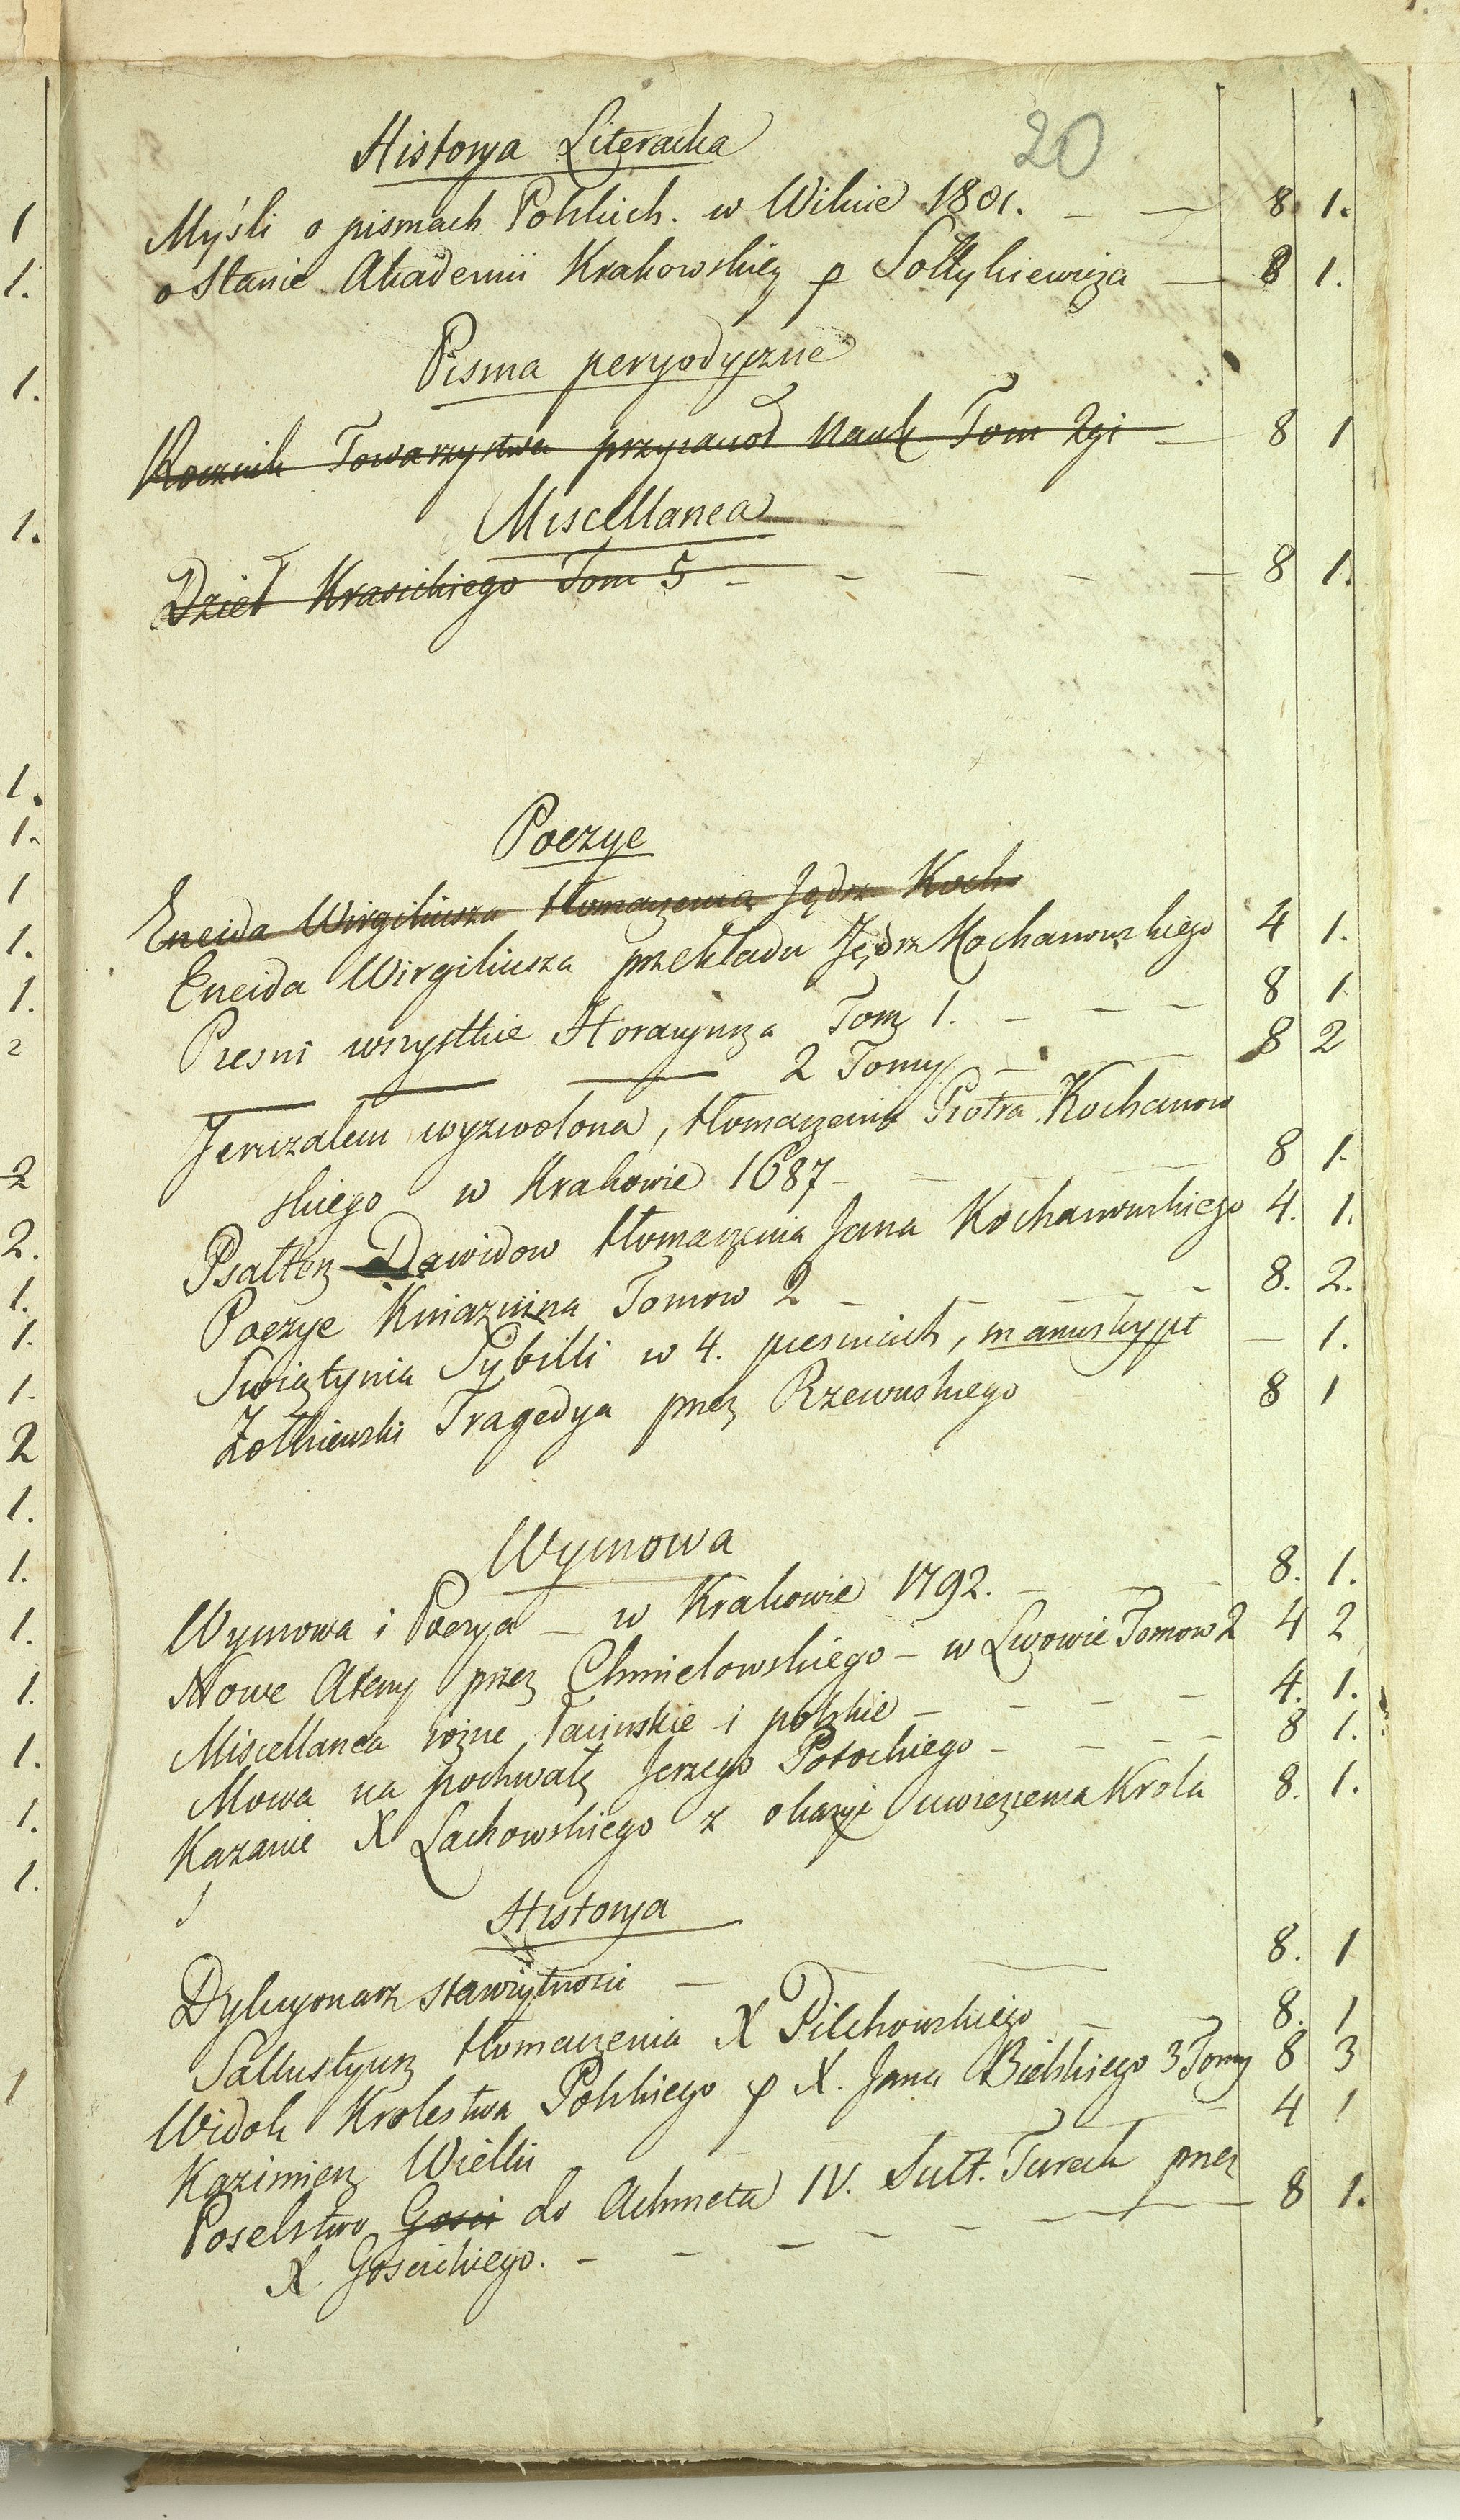 20
Historya Literacka
Myśli o pismach Polskich. w Wilnie 1801. — — 8 1.
o Stanie Akademii Krakowskiey p Sołtykiewicza — 8 1.
Pisma peryodyczne
Rocznik Towarzystwa przyiaciół Nauk Tom 2gi — 8 1
Miscellanea
Dzieł Krasickiego Tom 5 — — — — — 8 1.
Poezye
Eneida Wirgiliusza tłomaczenia Jędrz Koch
Eneida Wirgiliusza przekładu Jędrz Kochanowskiego 4 1.
Piesni wszystkie Horacyusza Tom 1. — — — 8 1
— — — 2 Tomy — 8 2
Jeruzalem wyzwolona, tłomaczenia Piotra Kochanow
skiego w Krakowie 1687 — — — 8 1.
Psałterz Dawidow tłomaczenia Jana Kochanowskiego 4. 1.
Poezye Kniaznina Tomow 2 — — — 8. 2.
Swiątynia Sybilli w 4. piesniach, manuskrypt — 1.
Zołkiewski Tragedya przez Rzewuskiego 8 1
Wymowa
Wymowa i Poezya — w Krakowie 1792. — — — 8. 1.
Nowe Ateny przez Chmielowskiego — w Lwowie Tomow 2 4 2
Miscellanea rożne łacinskie i polskie — — — — 4. 1.
Mowa na pochwałę Jerzego Potockiego — — — — 8 1.
Kazanie X Lachowskiego z okazyi uwięzienia Krola 8. 1.
Historya
Dykcyonarz starożytnosci — — 8. 1
Sallustyusz tłomaczenia X Pilchowskiego — — 8. 1
Widok Krolestwa Polskiego p X. Jana Bielskiego 3 Tomy 8 3
Kazimierz Wielki — — 4 1
Poselstwo Gosci do Achmeta IV. Sułt. Tureck przez
X. Goscickiego. — — — — — — — 8 1.